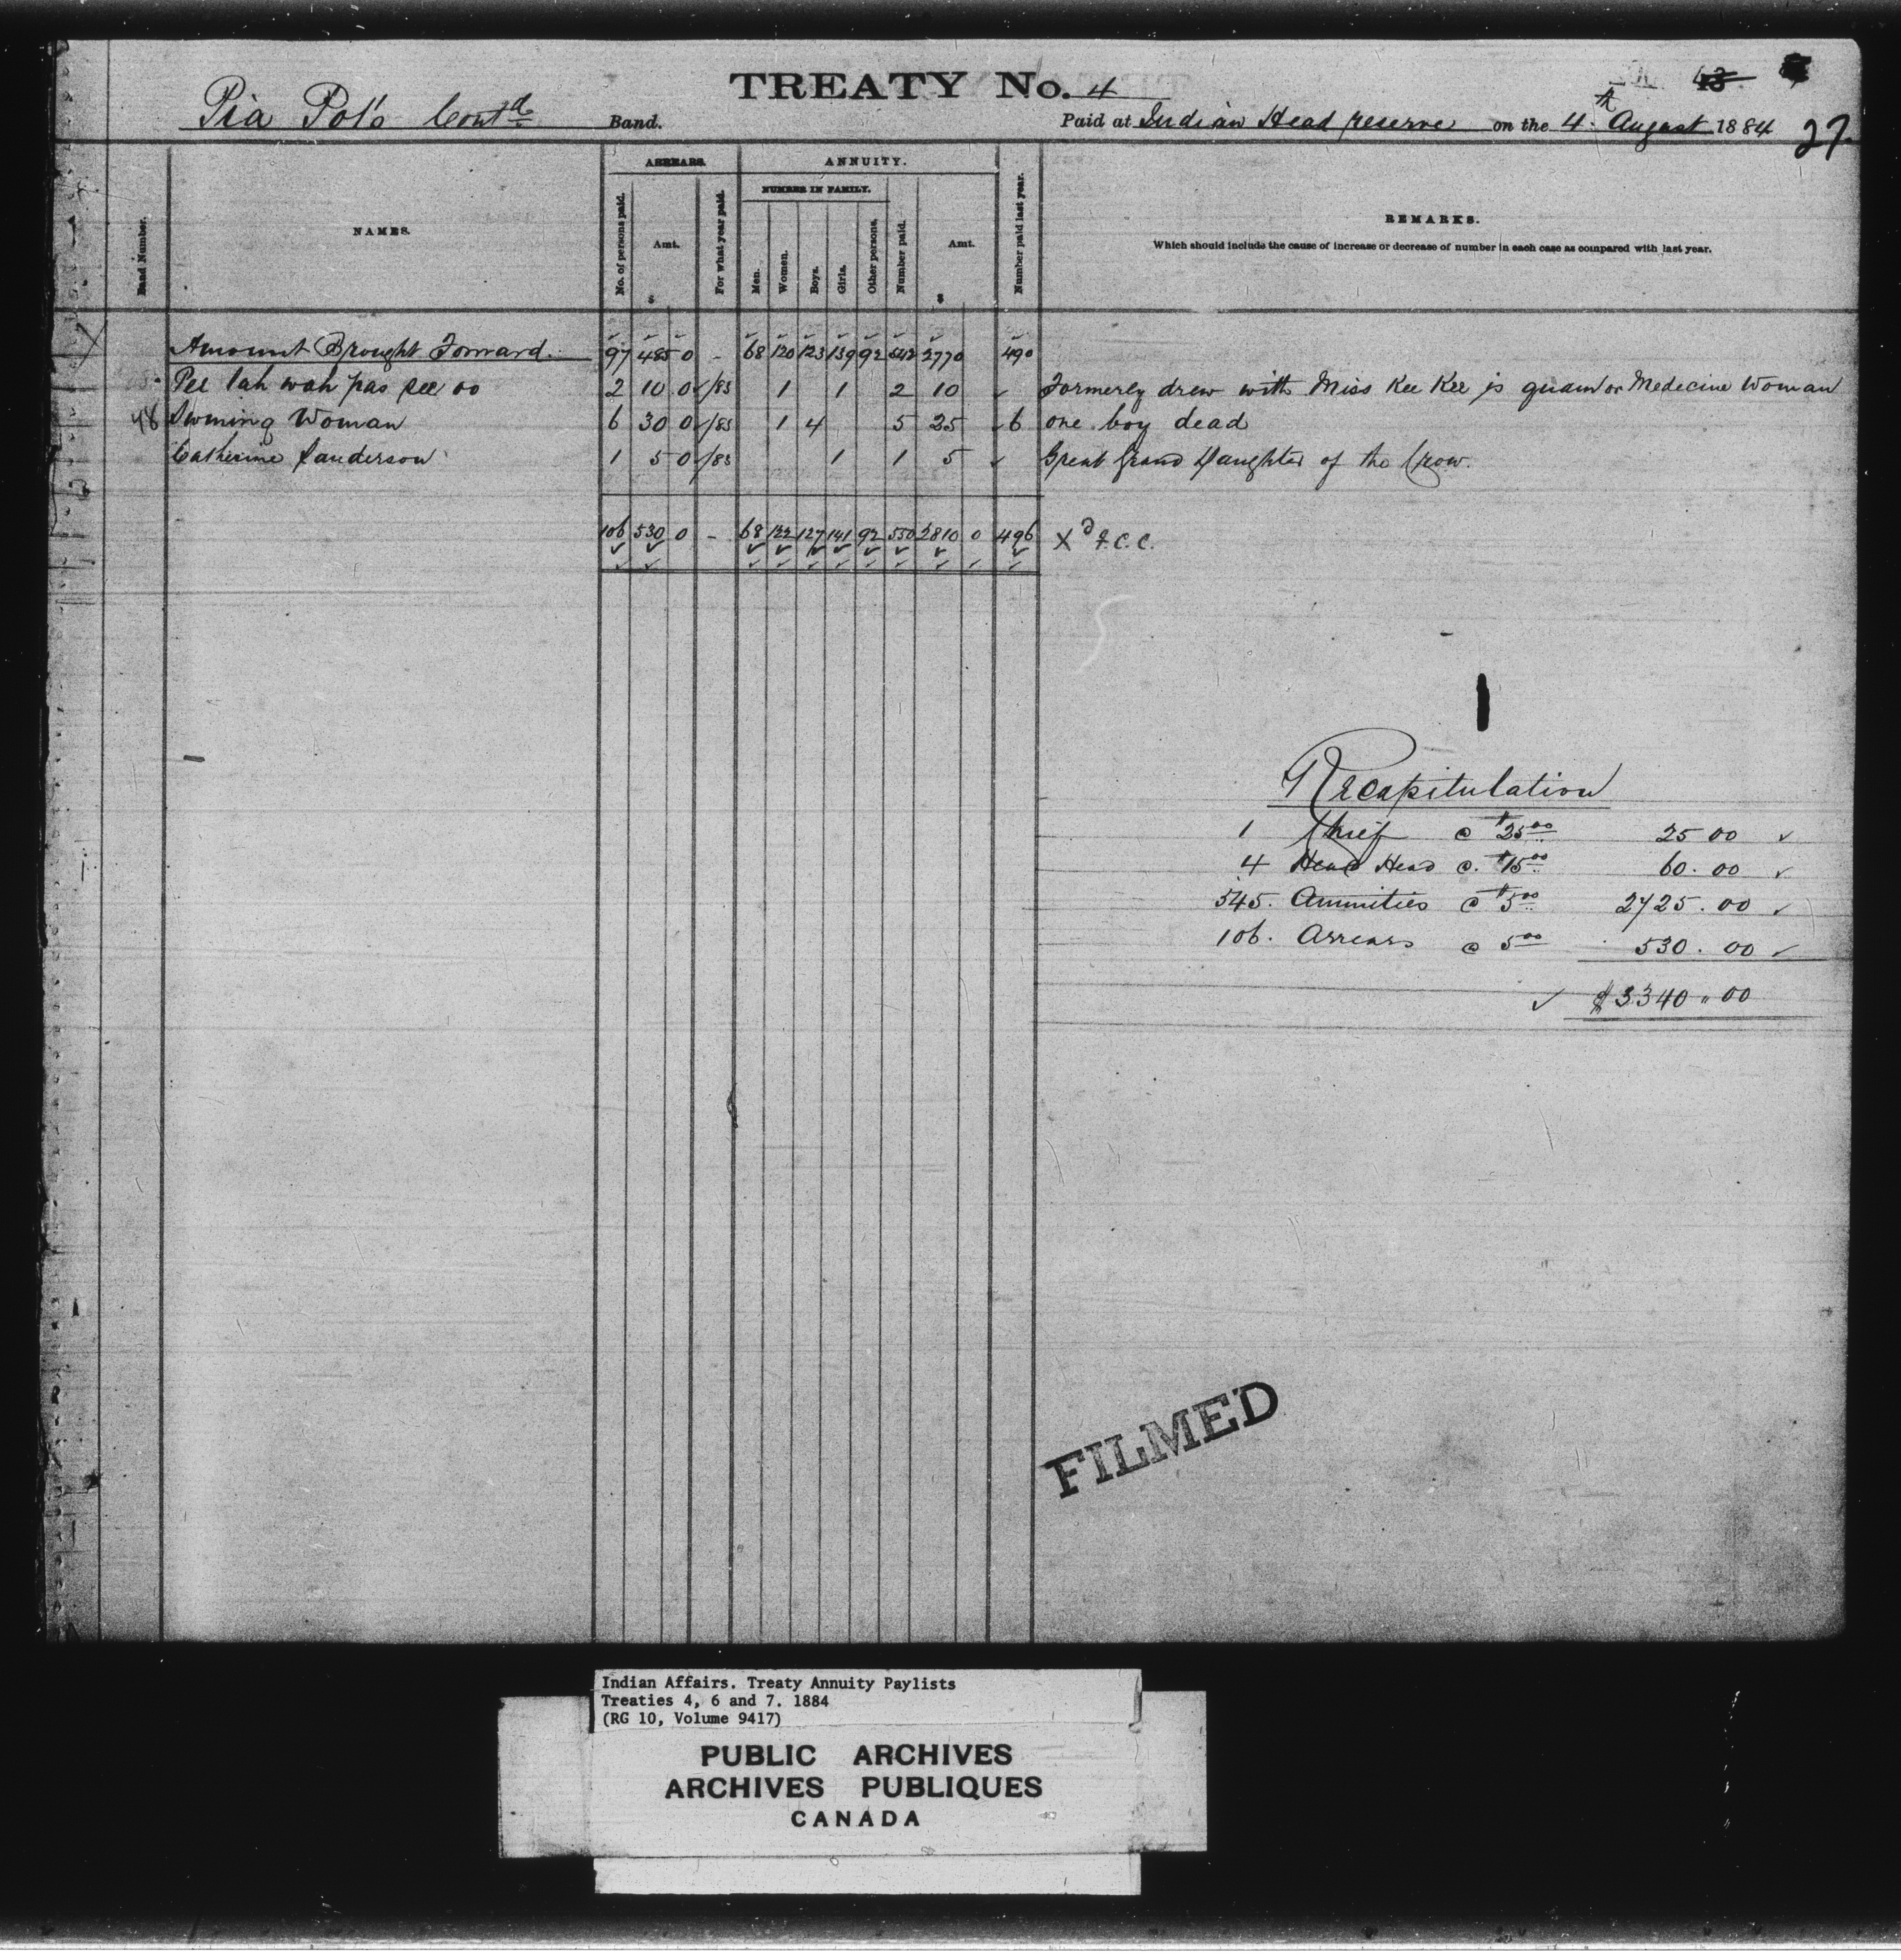 TREATY No. 4
43
Pia Pot's Contd Band. Paid at Indian Head reserve on the 4th August 1884 27.
ARREARS. ANNUITY.
NUMBER IN FAMILY.
Band Number. NAMES. No. of persons paid. Amt. $ For what year paid. Men. Women. Boys. Girls. Other persons. Number paid. Amt. $ Number paid last year. REMARKS.
Which should include the cause of increase or decrease of number in each case as compared with last year.
Amount Brought Forward. 97 485 0 - 68 120 123 139 92 542 2770 490
Pee tah wah pas see oo 2 10 0 /83 1 1 2 10 ✓ Formerly drew with Miss Kee Kee is quam or Medecine Woman
48 Swming Woman 6 30 0 /83 1 4 5 25 6 one boy dead
Catherine Sanderson 1 5 0 /83 1 1 5 ✓ Great Grand Daughter of the Crow.
106 530 0 - 68 122 127 141 92 550 2810 0 496 Xd F.C.C.
Recapitulation
1 Chief @ $25.00 25 00 ✓
4 Head Head @. $15.00 60. 00 ✓
545. Annuities @ $5.00 2725. 00 ✓
106. Arrears @ 5.00 530. 00 ✓
✓ $3340 " 00
FILMED
Indian Affairs. Treaty Annuity Paylists
Treaties 4, 6 and 7. 1884
(RG 10, Volume 9417)
PUBLIC ARCHIVES
ARCHIVES PUBLIQUES
CANADA